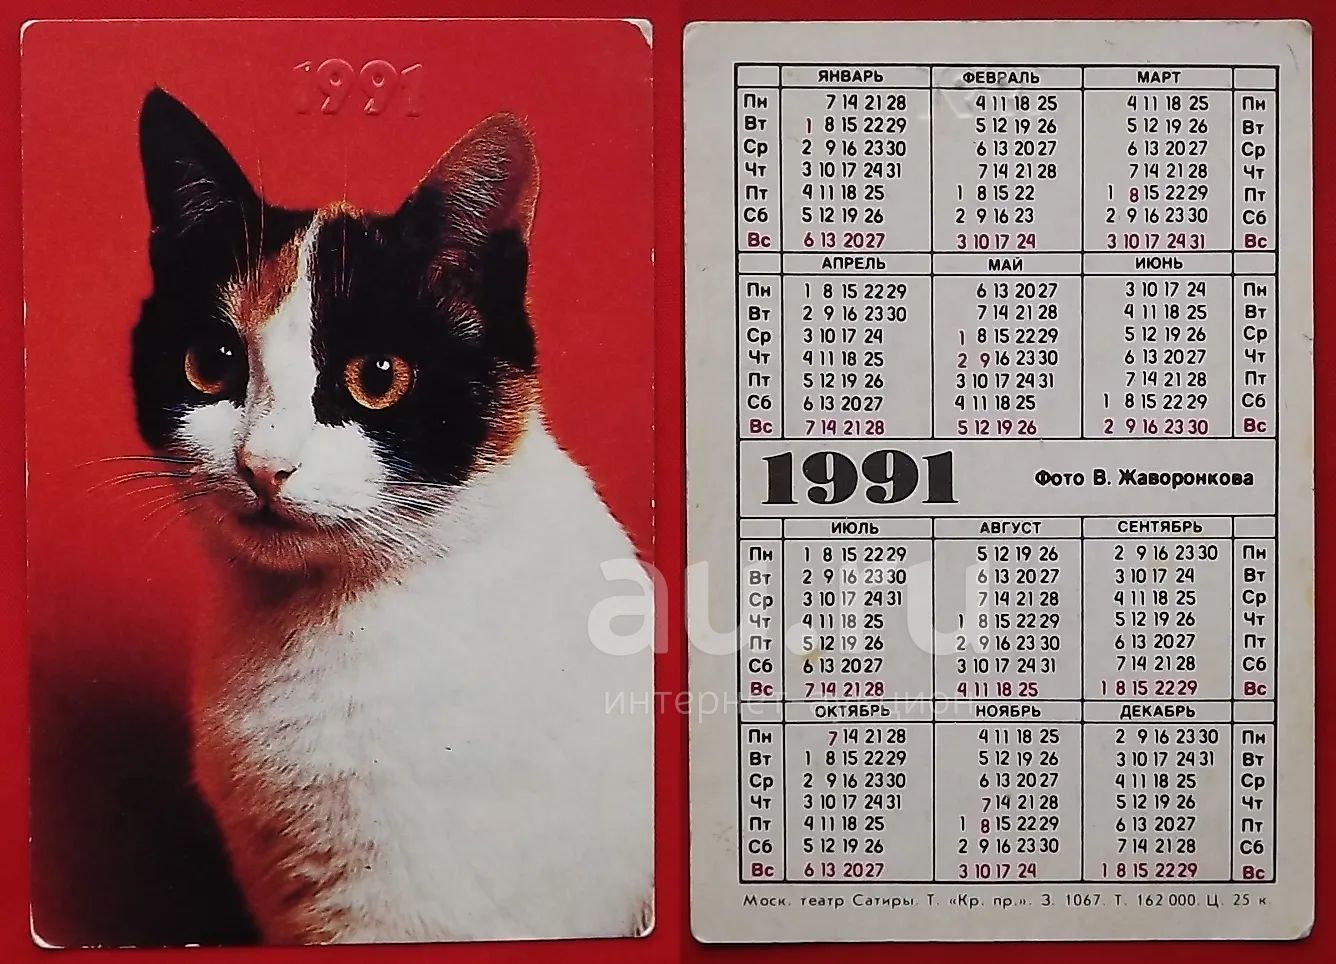 1991
ЯНВАРЬ ФЕВРАЛЬ МАРТ
Пн 7 14 21 28 4 11 18 25 4 11 18 25 Пн
Вт 1 8 15 22 29 5 12 19 26 5 12 19 26 Вт
Ср 2 9 16 23 30 6 13 20 27 6 13 20 27 Ср
Чт 3 10 17 24 31 7 14 21 28 7 14 21 28 Чт
Пт 4 11 18 25 1 8 15 22 1 8 15 22 29 Пт
Сб 5 12 19 26 2 9 16 23 2 9 16 23 30 Сб
Вс 6 13 20 27 3 10 17 24 3 10 17 24 31 Вс
АПРЕЛЬ МАЙ ИЮНЬ
Пн 1 8 15 22 29 6 13 20 27 3 10 17 24 Пн
Вт 2 9 16 23 30 7 14 21 28 4 11 18 25 Вт
Ср 3 10 17 24 1 8 15 22 29 5 12 19 26 Ср
Чт 4 11 18 25 2 9 16 23 30 6 13 20 27 Чт
Пт 5 12 19 26 3 10 17 24 31 7 14 21 28 Пт
Сб 6 13 20 27 4 11 18 25 1 8 15 22 29 Сб
Вс 7 14 21 28 5 12 19 26 2 9 16 23 30 Вс
1991 Фото В. Жаворонкова
ИЮЛЬ АВГУСТ СЕНТЯБРЬ
Пн 1 8 15 22 29 5 12 19 26 2 9 16 23 30 Пн
Вт 2 9 16 23 30 6 13 20 27 3 10 17 24 Вт
Ср 3 10 17 24 31 7 14 21 28 4 11 18 25 Ср
Чт 4 11 18 25 1 8 15 22 29 5 12 19 26 Чт
Пт 5 12 19 26 2 9 16 23 30 6 13 20 27 Пт
Сб 6 13 20 27 3 10 17 24 31 7 14 21 28 Сб
Вс 7 14 21 28 4 11 18 25 1 8 15 22 29 Вс
ОКТЯБРЬ НОЯБРЬ ДЕКАБРЬ
Пн 7 14 21 28 4 11 18 25 2 9 16 23 30 Пн
Вт 1 8 15 22 29 5 12 19 26 3 10 17 24 31 Вт
Ср 2 9 16 23 30 6 13 20 27 4 11 18 25 Ср
Чт 3 10 17 24 31 7 14 21 28 5 12 19 26 Чт
Пт 4 11 18 25 1 8 15 22 29 6 13 20 27 Пт
Сб 5 12 19 26 2 9 16 23 30 7 14 21 28 Сб
Вс 6 13 20 27 3 10 17 24 1 8 15 22 29 Вс
Моск. театр Сатиры. Т. «Кр. пр.». З. 1067. Т. 162 000. Ц. 25 к.
au.ru
интернет аукцион